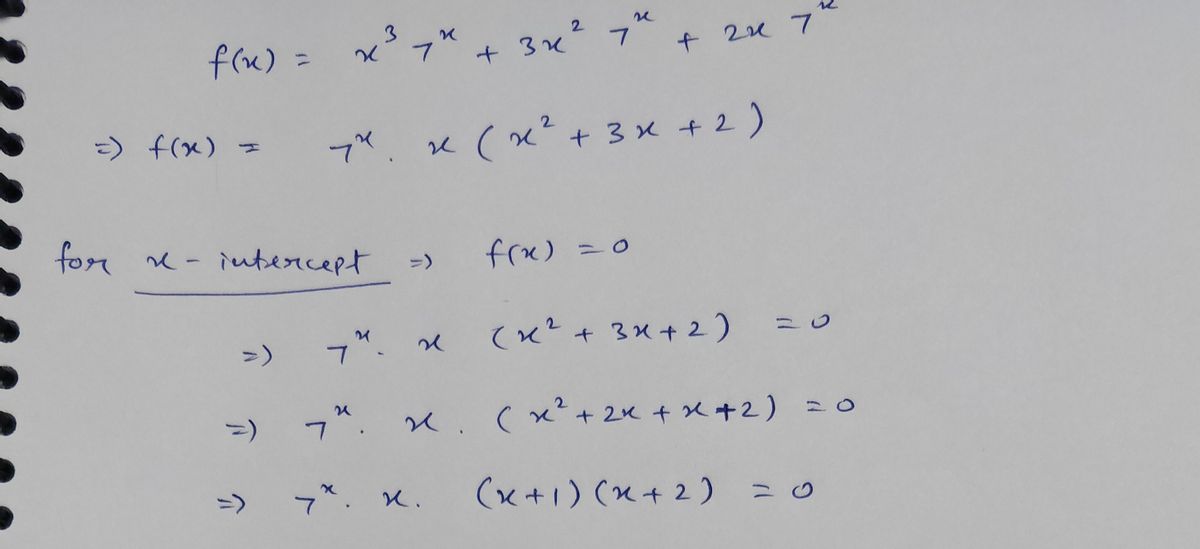 f(x) = x³ 7ˣ + 3x² 7ˣ + 2x 7ˣ
=) f(x) = 7ˣ. x ( x² + 3x + 2 )
for x - intercept =) f(x) = 0
=) 7ˣ. x ( x² + 3x + 2 ) = 0
=) 7ˣ. x . ( x² + 2x + x + 2 ) = 0
=) 7ˣ. x. (x+1) (x+2) = 0